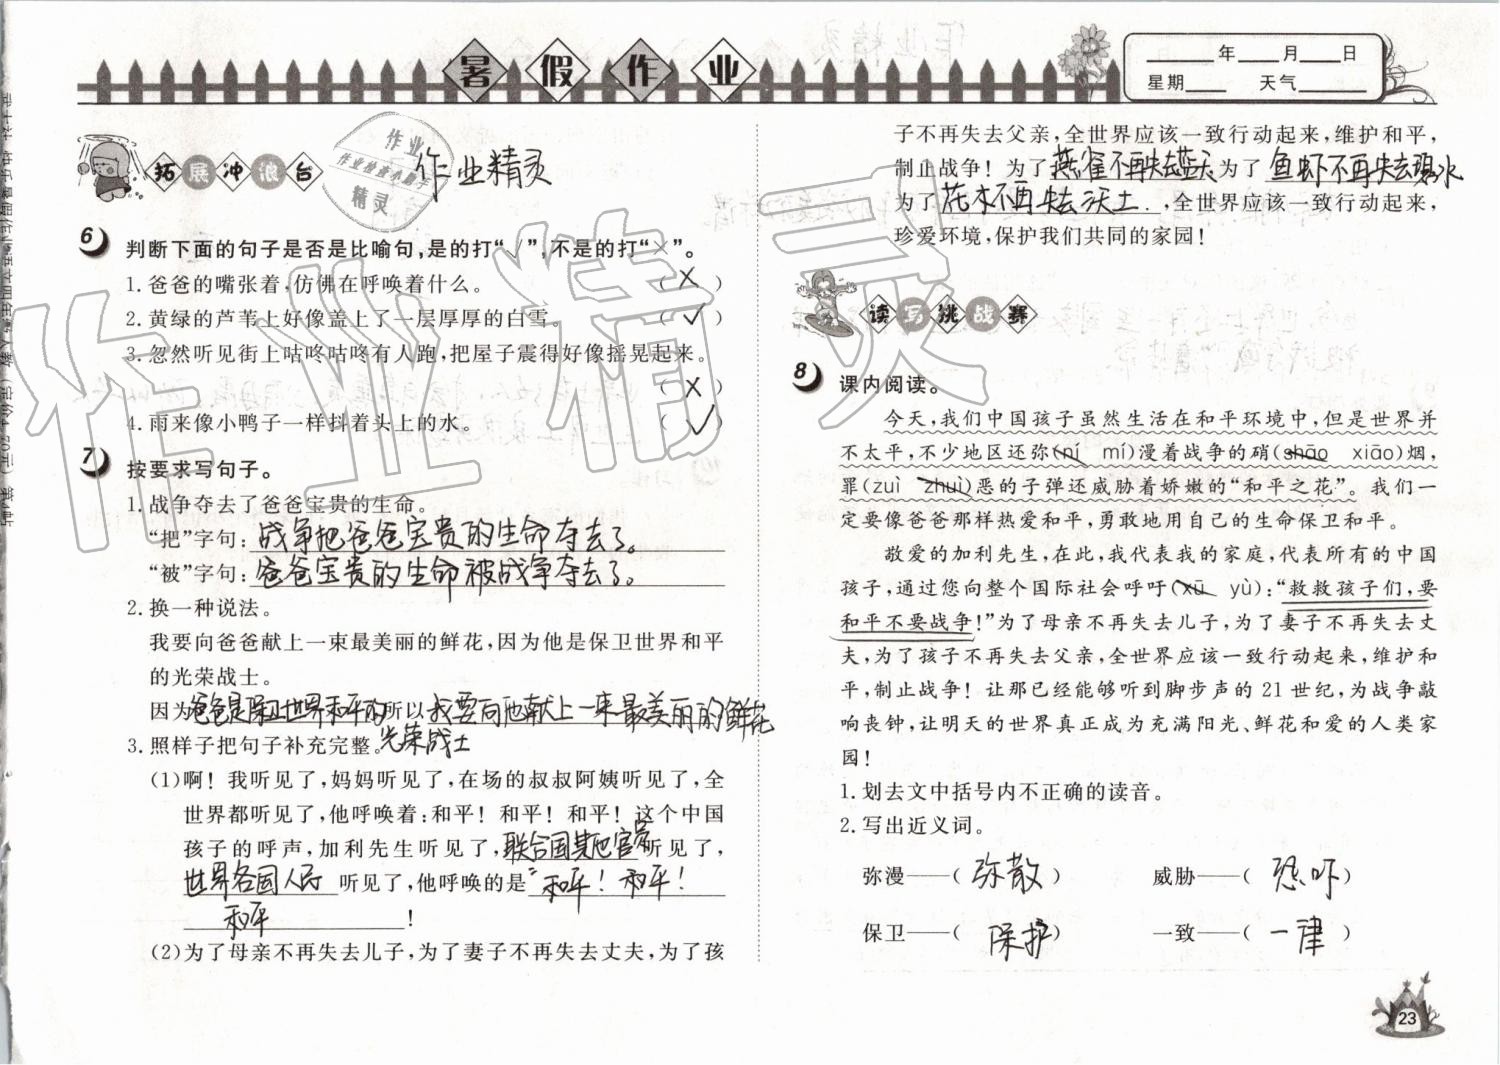 暑假作业
____年____月____日
星期____ 天气______
拓展冲浪台
作业精灵
作业
作业检查小助手
精灵
6 判断下面的句子是否是比喻句,是的打“√”,不是的打“×”。
1.爸爸的嘴张着,仿佛在呼唤着什么。 ( X )
2.黄绿的芦苇上好像盖上了一层厚厚的白雪。 ( √ )
3.忽然听见街上咕咚咕咚有人跑,把屋子震得好像摇晃起来。
( X )
4.雨来像小鸭子一样抖着头上的水。 ( √ )
7 按要求写句子。
1.战争夺去了爸爸宝贵的生命。
“把”字句:战争把爸爸宝贵的生命夺去了。
“被”字句:爸爸宝贵的生命被战争夺去了。
2.换一种说法。
我要向爸爸献上一束最美丽的鲜花,因为他是保卫世界和平
的光荣战士。
因为爸爸是保卫世界和平的所以我要向他献上一束最美丽的鲜花
光荣战士
3.照样子把句子补充完整。
(1)啊!我听见了,妈妈听见了,在场的叔叔阿姨听见了,全
世界都听见了,他呼唤着:和平!和平!和平!这个中国
孩子的呼声,加利先生听见了,联合国其他官员听见了,
世界各国人民听见了,他呼唤的是“和平!和平!
和平!
(2)为了母亲不再失去儿子,为了妻子不再失去丈夫,为了孩
子不再失去父亲,全世界应该一致行动起来,维护和平,
制止战争!为了燕雀不再失去蓝天为了鱼虾不再失去碧水
为了花木不再失去沃土.,全世界应该一致行动起来,
珍爱环境,保护我们共同的家园!
读写挑战赛
8 课内阅读。
今天,我们中国孩子虽然生活在和平环境中,但是世界并
不太平,不少地区还弥(ní mí)漫着战争的硝(shāo xiāo)烟,
罪(zuì zhuì)恶的子弹还威胁着娇嫩的“和平之花”。我们一
定要像爸爸那样热爱和平,勇敢地用自己的生命保卫和平。
敬爱的加利先生,在此,我代表我的家庭,代表所有的中国
孩子,通过您向整个国际社会呼吁(xū yù):“救救孩子们,要
和平不要战争!”为了母亲不再失去儿子,为了妻子不再失去丈
夫,为了孩子不再失去父亲,全世界应该一致行动起来,维护和
平,制止战争!让那已经能够听到脚步声的21世纪,为战争敲
响丧钟,让明天的世界真正成为充满阳光、鲜花和爱的人类家
园!
1.划去文中括号内不正确的读音。
2.写出近义词。
弥漫——( 弥散 ) 威胁——( 恐吓 )
保卫——( 保护 ) 一致——( 一律 )
23
作业精灵